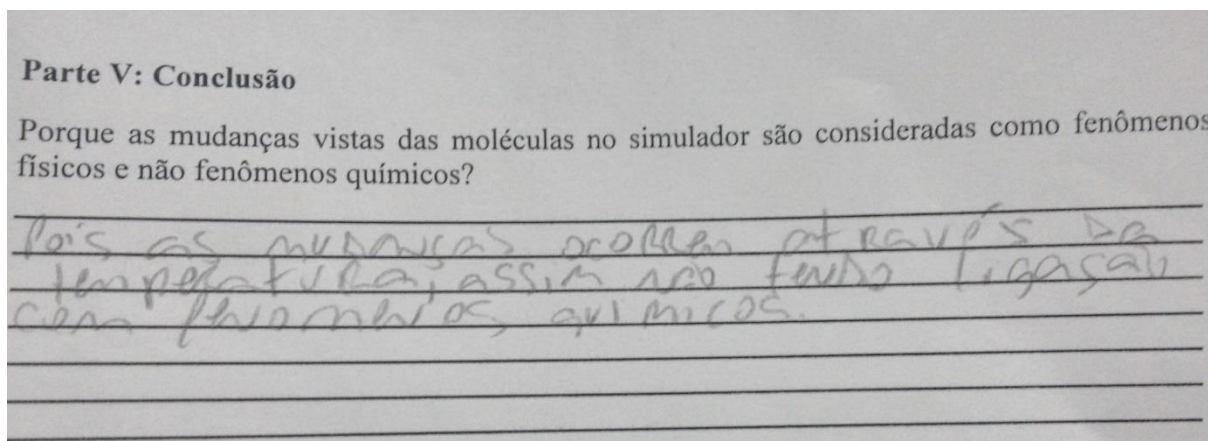 Parte V: Conclusão
Porque as mudanças vistas das moléculas no simulador são consideradas como fenômenos
físicos e não fenômenos químicos?
Pois as mudanças ocorrem através da
temperatura, assim não tendo ligasão
com fenomenos quimicos.